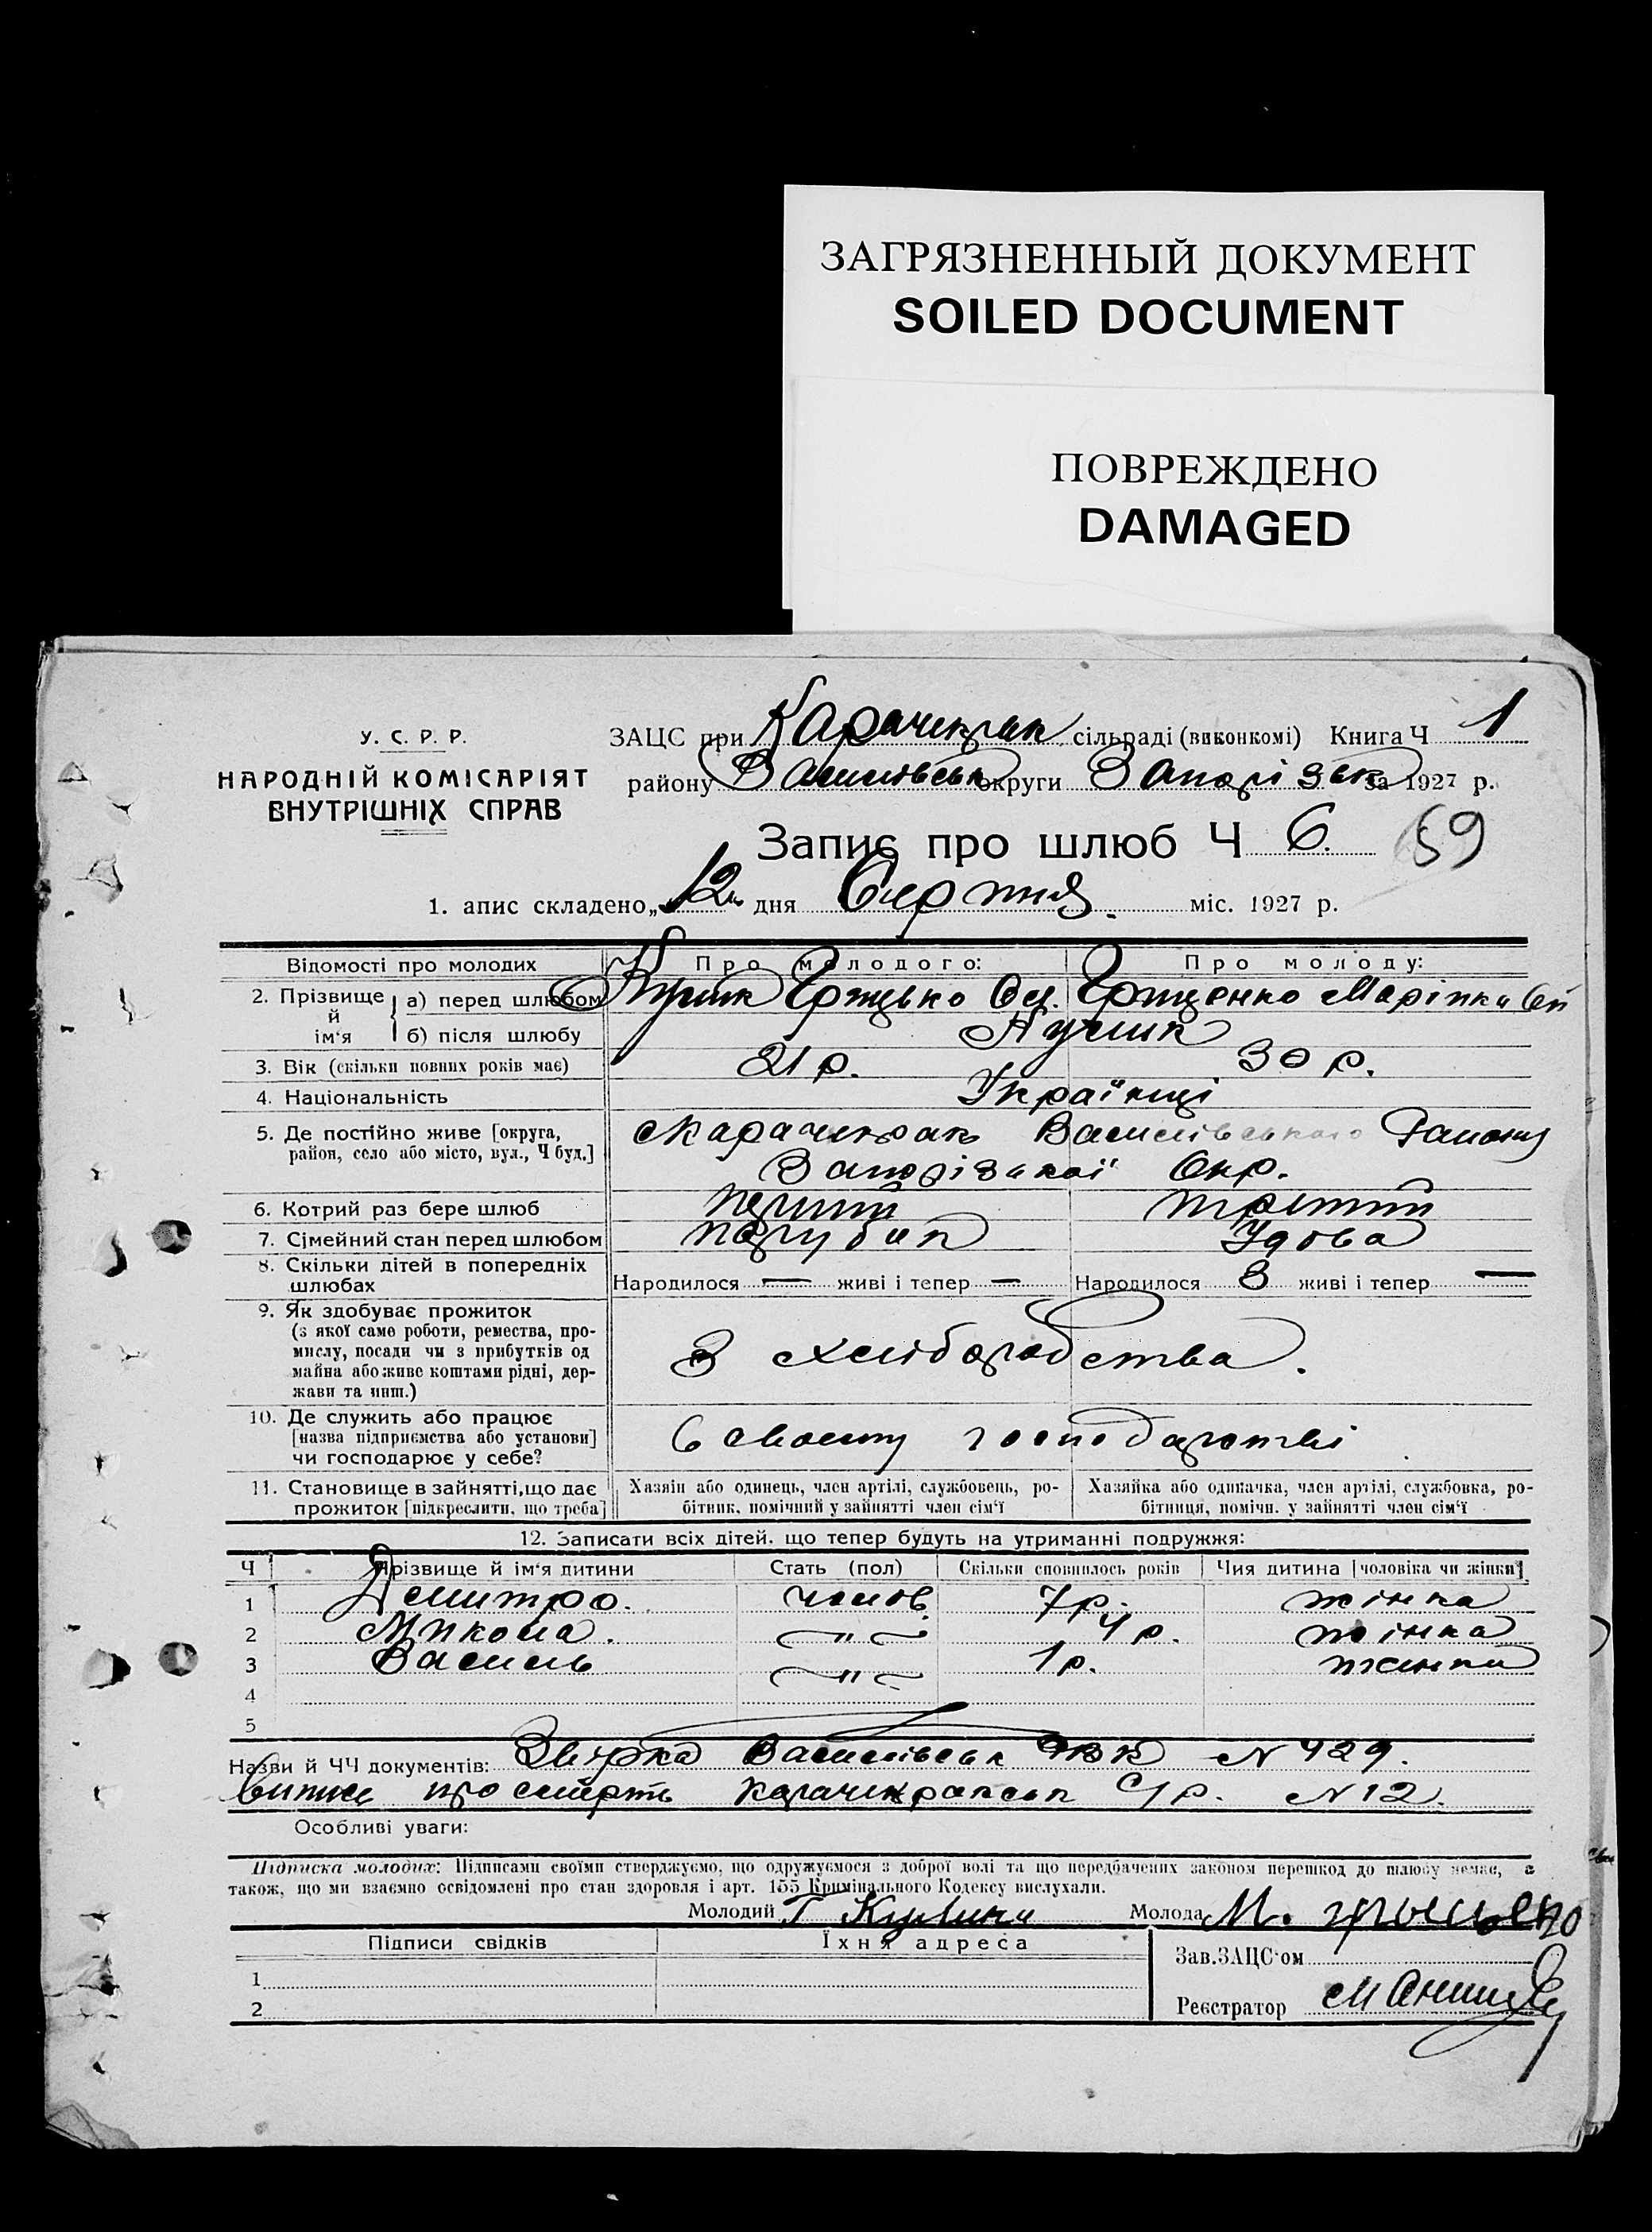 ЗАГРЯЗНЕННЫЙ ДОКУМЕНТ
SOILED DOCUMENT
ПОВРЕЖДЕНО
DAMAGED
У. С. Р. Р.
НАРОДНІЙ КОМІСАРІЯТ
ВНУТРІШНІХ СПРАВ
ЗАЦС при Карачекрак сільраді (виконкомі) Книга Ч 1
району Василівськ округи Запорізьк за 1927 р.
Запис про шлюб Ч 6. 59
1. апис складено „12" дня Серпня. міс. 1927 р.
Відомості про молодих Про молодого: Про молоду:
2. Прізвище й ім'я а) перед шлюбом Грицько Грищенко Марінка
б) після шлюбу
3. Вік (скільки повних років має) 21 р. 30 р.
4. Національність Українці
5. Де постійно живе [округа, район, село або місто, вул., Ч буд.] Карачекрак Василівського Району
Запорізької Окр.
6. Котрий раз бере шлюб перший третий
7. Сімейний стан перед шлюбом парубок Удова
8. Скільки дітей в попередніх шлюбах Народилося — живі і тепер — Народилося 3 живі і тепер —
9. Як здобуває прожиток
(з якої саме роботи, ремества, про-
мислу, посади чи з прибутків од
майна або живе коштами рідні, дер-
жави та инш.)
З хліборобства.
10. Де служить або працює
[назва підприємства або установи]
чи господарює у себе?
В своему господарстві
11. Становище в зайнятті, що дає
прожиток [підкреслити, що треба]
Хазяїн або одинець, член артілі, службовець, ро-
бітник, помічний у зайнятті член сім'ї
Хазяйка або одиначка, член артілі, службовка, ро-
бітниця, помічн. у зайнятті член сім'ї
12. Записати всіх дітей, що тепер будуть на утриманні подружжя:
Ч Прізвище й ім'я дитини Стать (пол) Скільки сповнилось років Чия дитина [чоловіка чи жінки]
1 Демитро. чолов. 7 р. жінка
2 Микола. — " — 4 р. жінка
3 Василь — " — 1 р. жинка
4
5
Назви й ЧЧ документів: Василівськ РВК N 429.
Випись про смерть Карачекракськ С/р. N 12.
Особливі уваги:
Підписка молодих: Підписами своїми стверджуємо, що одружуємося з доброї волі та що передбачених законом перешкод до шлюбу немає, а
також, що ми взаємно освідомлені про стан здоровля і арт. 155 Кримінального Кодексу вислухали.
Молодий Г Молода М.
Підписи свідків Їхня адреса
1
2
Зав.ЗАЦС'ом
Реєстратор